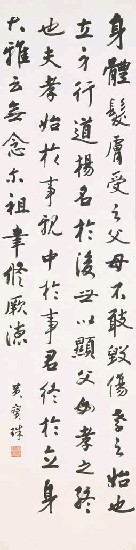 身體髮膚受之父母不敢毀傷孝之始也
立身行道揚名於後世以顯父母孝之終
也夫孝始於事親中於事君終於立身
大雅云無念尔祖聿修厥德
寶珠